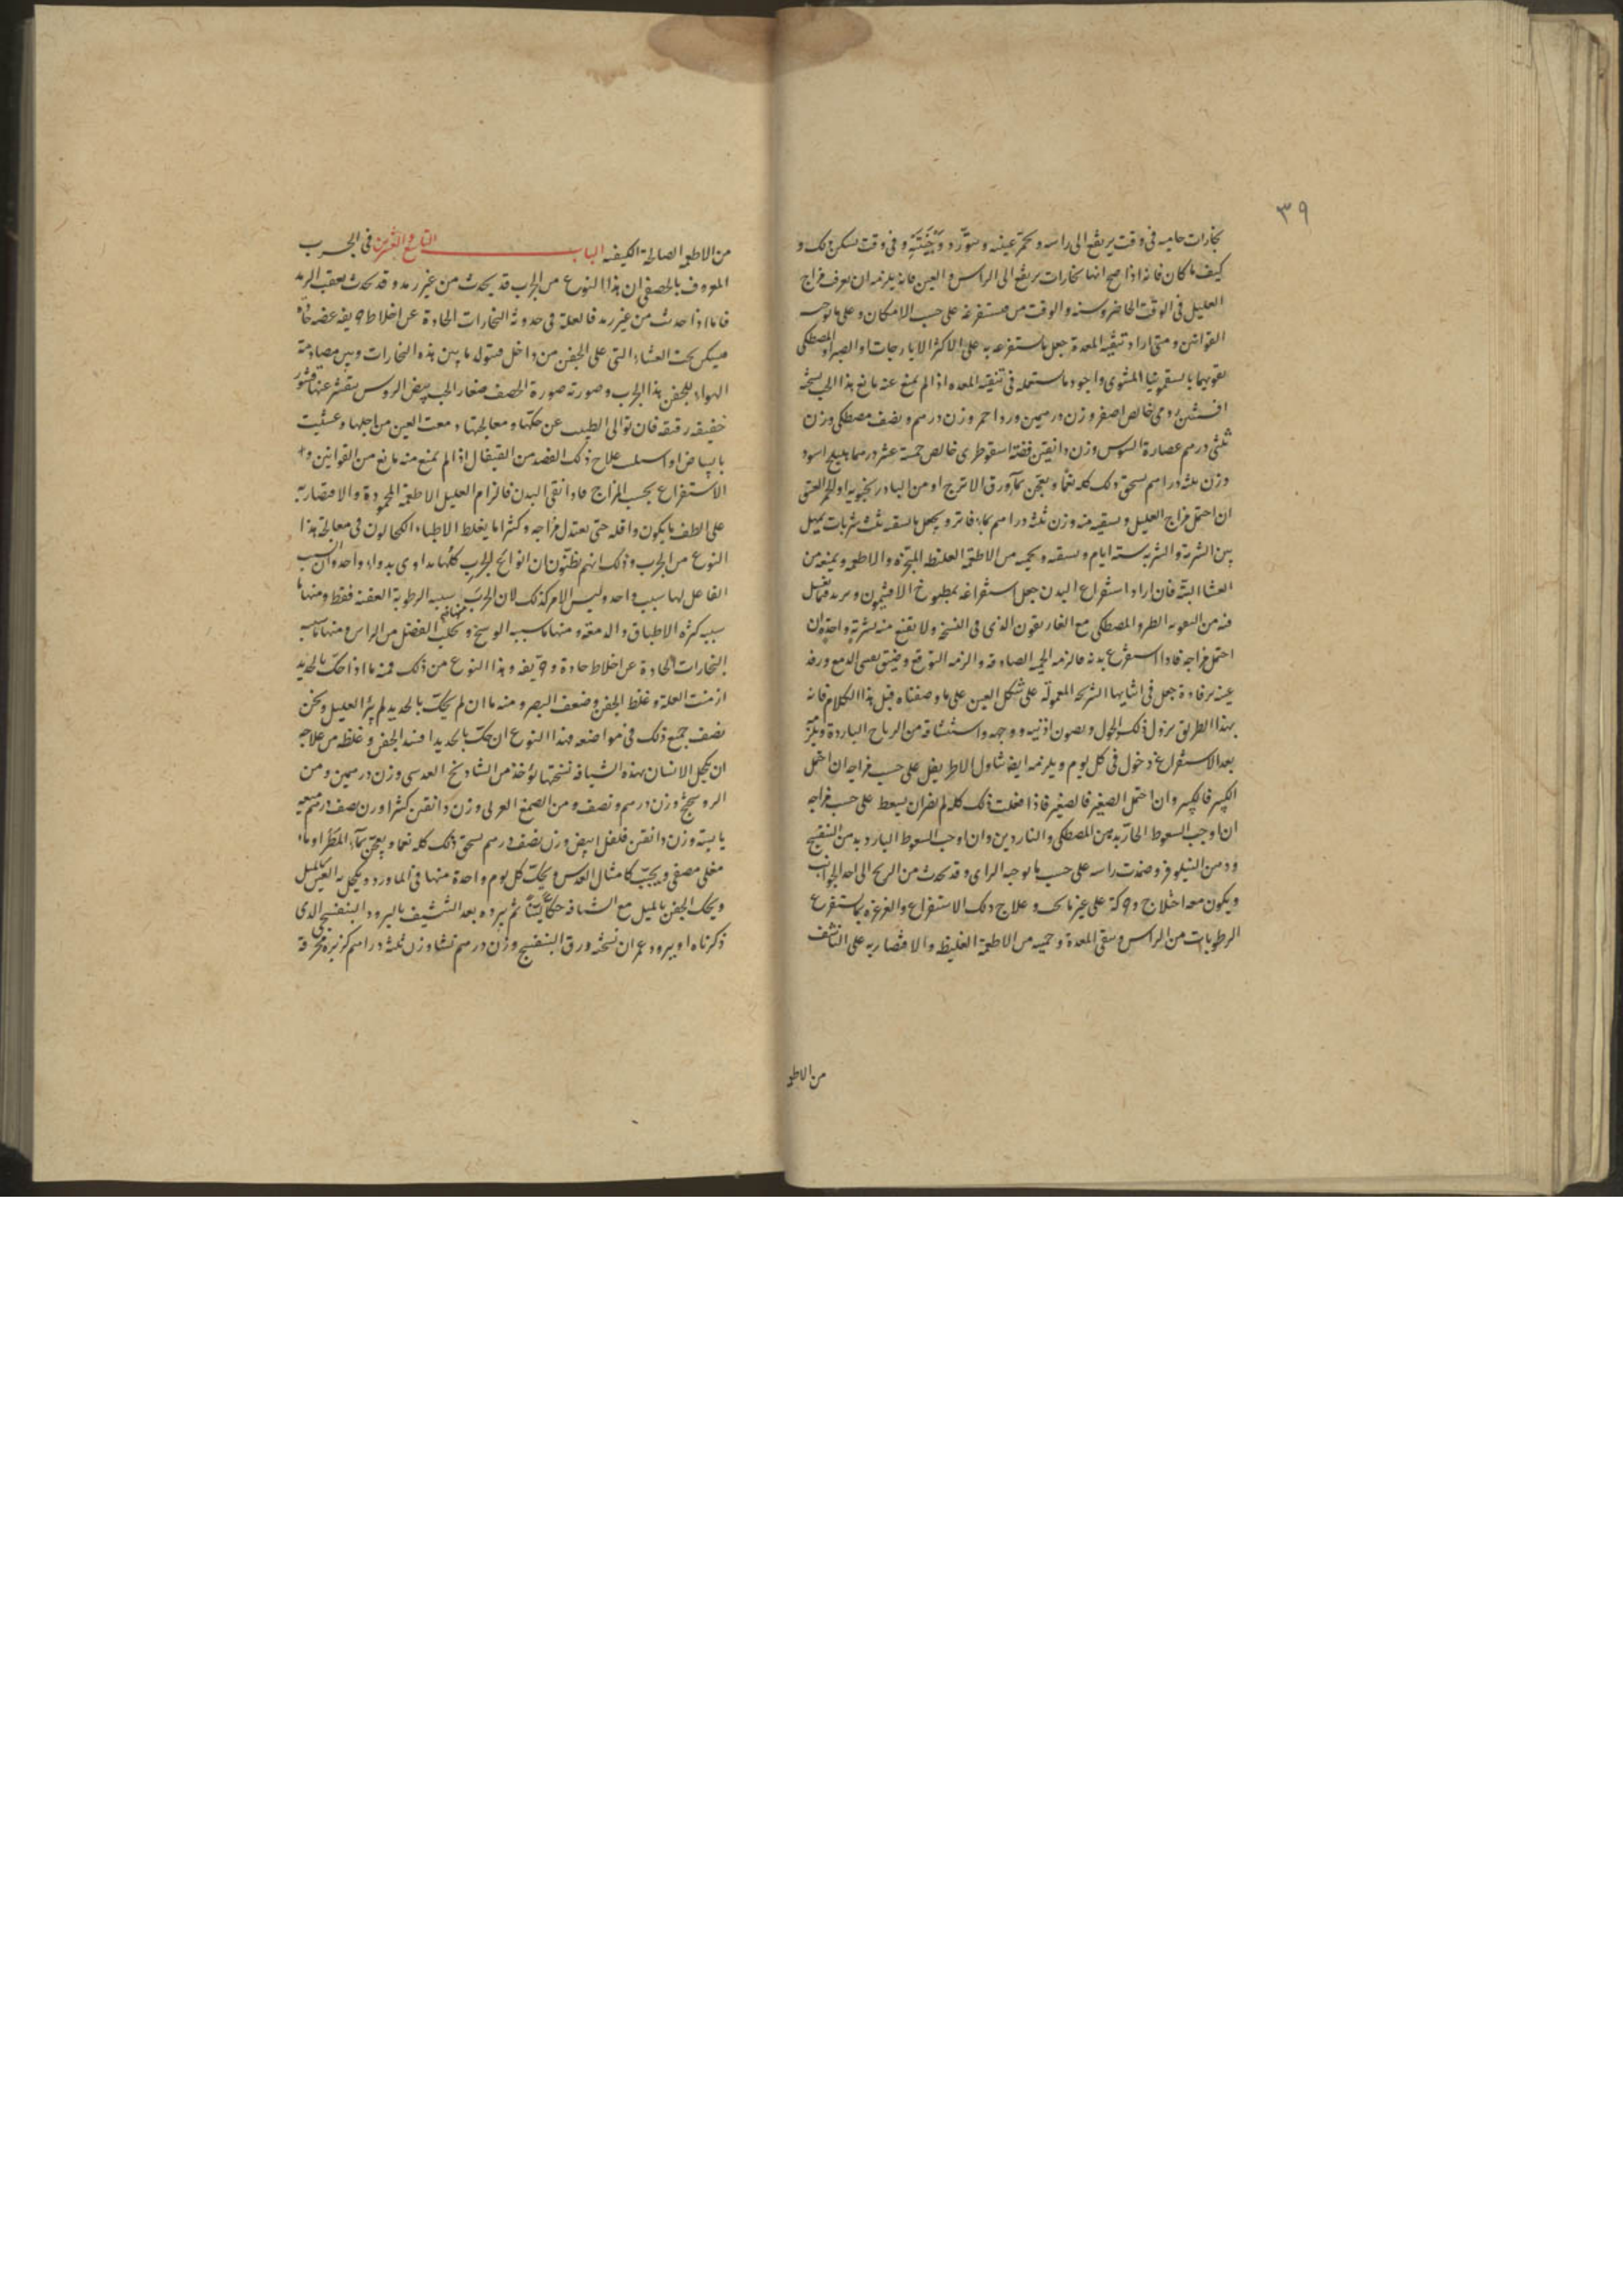 ٣٩
بخارات حاميه فى وقت يرتفع الى راسه و تحمر عينيه و تتورد وجنتيه و فى وقت يسكن ذلك و
كيف ما كان فانه اذا صح انها بخارات يرتفع الى الراس و العين فانه يلزمه ان يعرف مزاج
العليل فى الوقت الحاضر وسنه والوقت من مستفرغه على حسب الامكان و على ما توجبه
القوانين و متى اراد تنقيه المعدة جعل ما يستفرغه به على الاكثر الايارجات او الصبر و المصطكى
يقويهما بالسقمونيا المشوى واجود ما يستعمله فى تنقيه المعده اذا لم يمنع عنه مانع هذا الحب نسخته
افسنتين رومى خالص اصفر وزن درهمين ورد احمر وزن درهم و نصف مصطكى وزن
ثلثى درهم عصارة السوس وزن دانقين فضة اسقوطرى خالص خمسة عشر درهما هليلج اسود
وزن ثلثه دراهم يسحق ذلك كله نعما و يعجن بماء ورق الاترج او من البادرنجبويه او الخمر العتيق
ان احتمل مزاج العليل و يسقيه منه وزن ثلثه دراهم بماء فاتر و يجعل ما يسقيه ثلث شربات يمهل
بين الشربة و الشربه سته ايام و يسقه و يحميه من الاطعمة الغليظه المبخرة و الاطعمه و يمنعه من
العشا البتة فان اراد استفراغ البدن جعل استفراغه بمطبوخ الافتيمون و يريد فيما يغسل
فمه من التقويه الطر و المصطكى مع الغاريقون الذى فى النسخة ولا يقنع منه بشربة واحدة ان
احتمل مزاجه فاذا استفرغ بدنه فالزمه الحميه الصادقه و الزمه التوقع و ضيق يعنى الدمع و رفد
عينه برفادة جعل فى اثنايها الشريحه المعمولة على شكل العين على ما وصفناه قبل هذا الكلام فانه
بهذا الطريق يزول ذلك الحول و يصون اذنيه و وجهه و استنشاقه من الرياح الباردة و يلزمه
بعد الاستفراغ دخول فى كل يوم و يلزمه ايضا تناول الاطريفل على حسب مزاجه ان احتمل
الكبير فالكبير و ان احتمل الصغير فالصغير فاذا فعلت ذلك كله لم يضر ان يسعط على حسب مزاجه
ان اوجب السعوط الحار بدهن المصطكى و الناردين و ان اوجب السعوط البارد بدهن البنفسج
و دهن النيلوفر و ضمدت راسه على حسب ما يوجبه الراى و قد يحدث من الريح الى احد الجوانب
و يكون معه اختلاج و حركة على غير ما يجب و علاج ذلك الاستفراغ و الغرغره بما يستفرغ
الرطوبات من الراس و ينقى المعدة و حميه من الاطعمة الغليظه و الاقتصار به على الناشف
من الاطعمه
من الاطعمه الصالحة الكيفيه الباب التاسع و العشرين فى الجرب
المعروف بالحصفى ان هذا النوع من الجرب قد يحدث من غير رمد و قد يحدث بعقب الرمد
فاما اذا حدث من غير رمد فالعلة فى حدوثه البخارات الحادة عن اخلاط حريفه عفنه حاده
فيسكن تحت الغشاء التى على الجفن من داخل فيتولد ما بين هذه البخارات و بين مصادمة
الهواء للجفن هذا الجرب و صورته صورة الحصف صغار الحب بيض الروس يتقشر عنها قشور
خفيفه رقيقه فان توانى الطبيب عن حكها و معالجتها دمعت العين من اجلها و عشيت
بالبياض او اسبلت علاج ذلك الفصد من القيفال اذا لم يمنع منه مانع من القوانين و
الاستفراغ بحسب المزاج فاذا نقى البدن فالزام العليل الاطعمة المحمودة و الاقتصار به
على الطف ما يكون و اقله حتى يعتدل مزاجه و كثيرا ما يغلط الاطباء الكحالون فى معالجة هذا
النوع من الجرب و ذلك انهم يظنون ان انواع الجرب كلها يداوى بدواء واحد و ان السبب
الفاعل لها سبب واحد وليس الامر كذلك لان الجرب منها ما سببه الرطوبة العفنه فقط و منها ما
سببه كثرة الاطباق و الدمعة و منها ما سببه الوسخ و تحلب الفضل من الراس و منها ما سببه
البخارات الحادة عن اخلاط حادة و حريفه و هذا النوع من ذلك فمنه ما اذا حك بالحديد
ازمنت العلة و غلظ الجفن و ضعف البصر و منه ما ان لم يحك بالحديد لم يبرا العليل و نحن
نصف جميع ذلك فى مواضعه فهذا النوع ان حك بالحديد افسد الجفن و غلظه من علاجه
ان يكحل الانسان بهذه الشيافه نسختها يؤخذ من الشادنج العدسى وزن درهمين و من
الروسختج وزن درهم و نصف و من الصمغ العربى وزن دانقين كثيرا وزن نصف درهم ميعه
يابسة وزن دانقين فلفل ابيض وزن نصف درهم يسحق ذلك كله نعما و يعجن بماء المطر او ماء
مغلى مصفى و يحبب كامثال العدس و يحك كل يوم واحدة منها فى الماورد و يكحل به العين بالميل
و يحك الجفن بالميل مع الشيافه حكا لينا ثم يبرده بعد التشييف بالبرود البنفسجى الذى
ذكرناه او ببرود عمران نسخته ورق البنفسج وزن درهم نشا وزن ثلثه دراهم كزبره محرقة